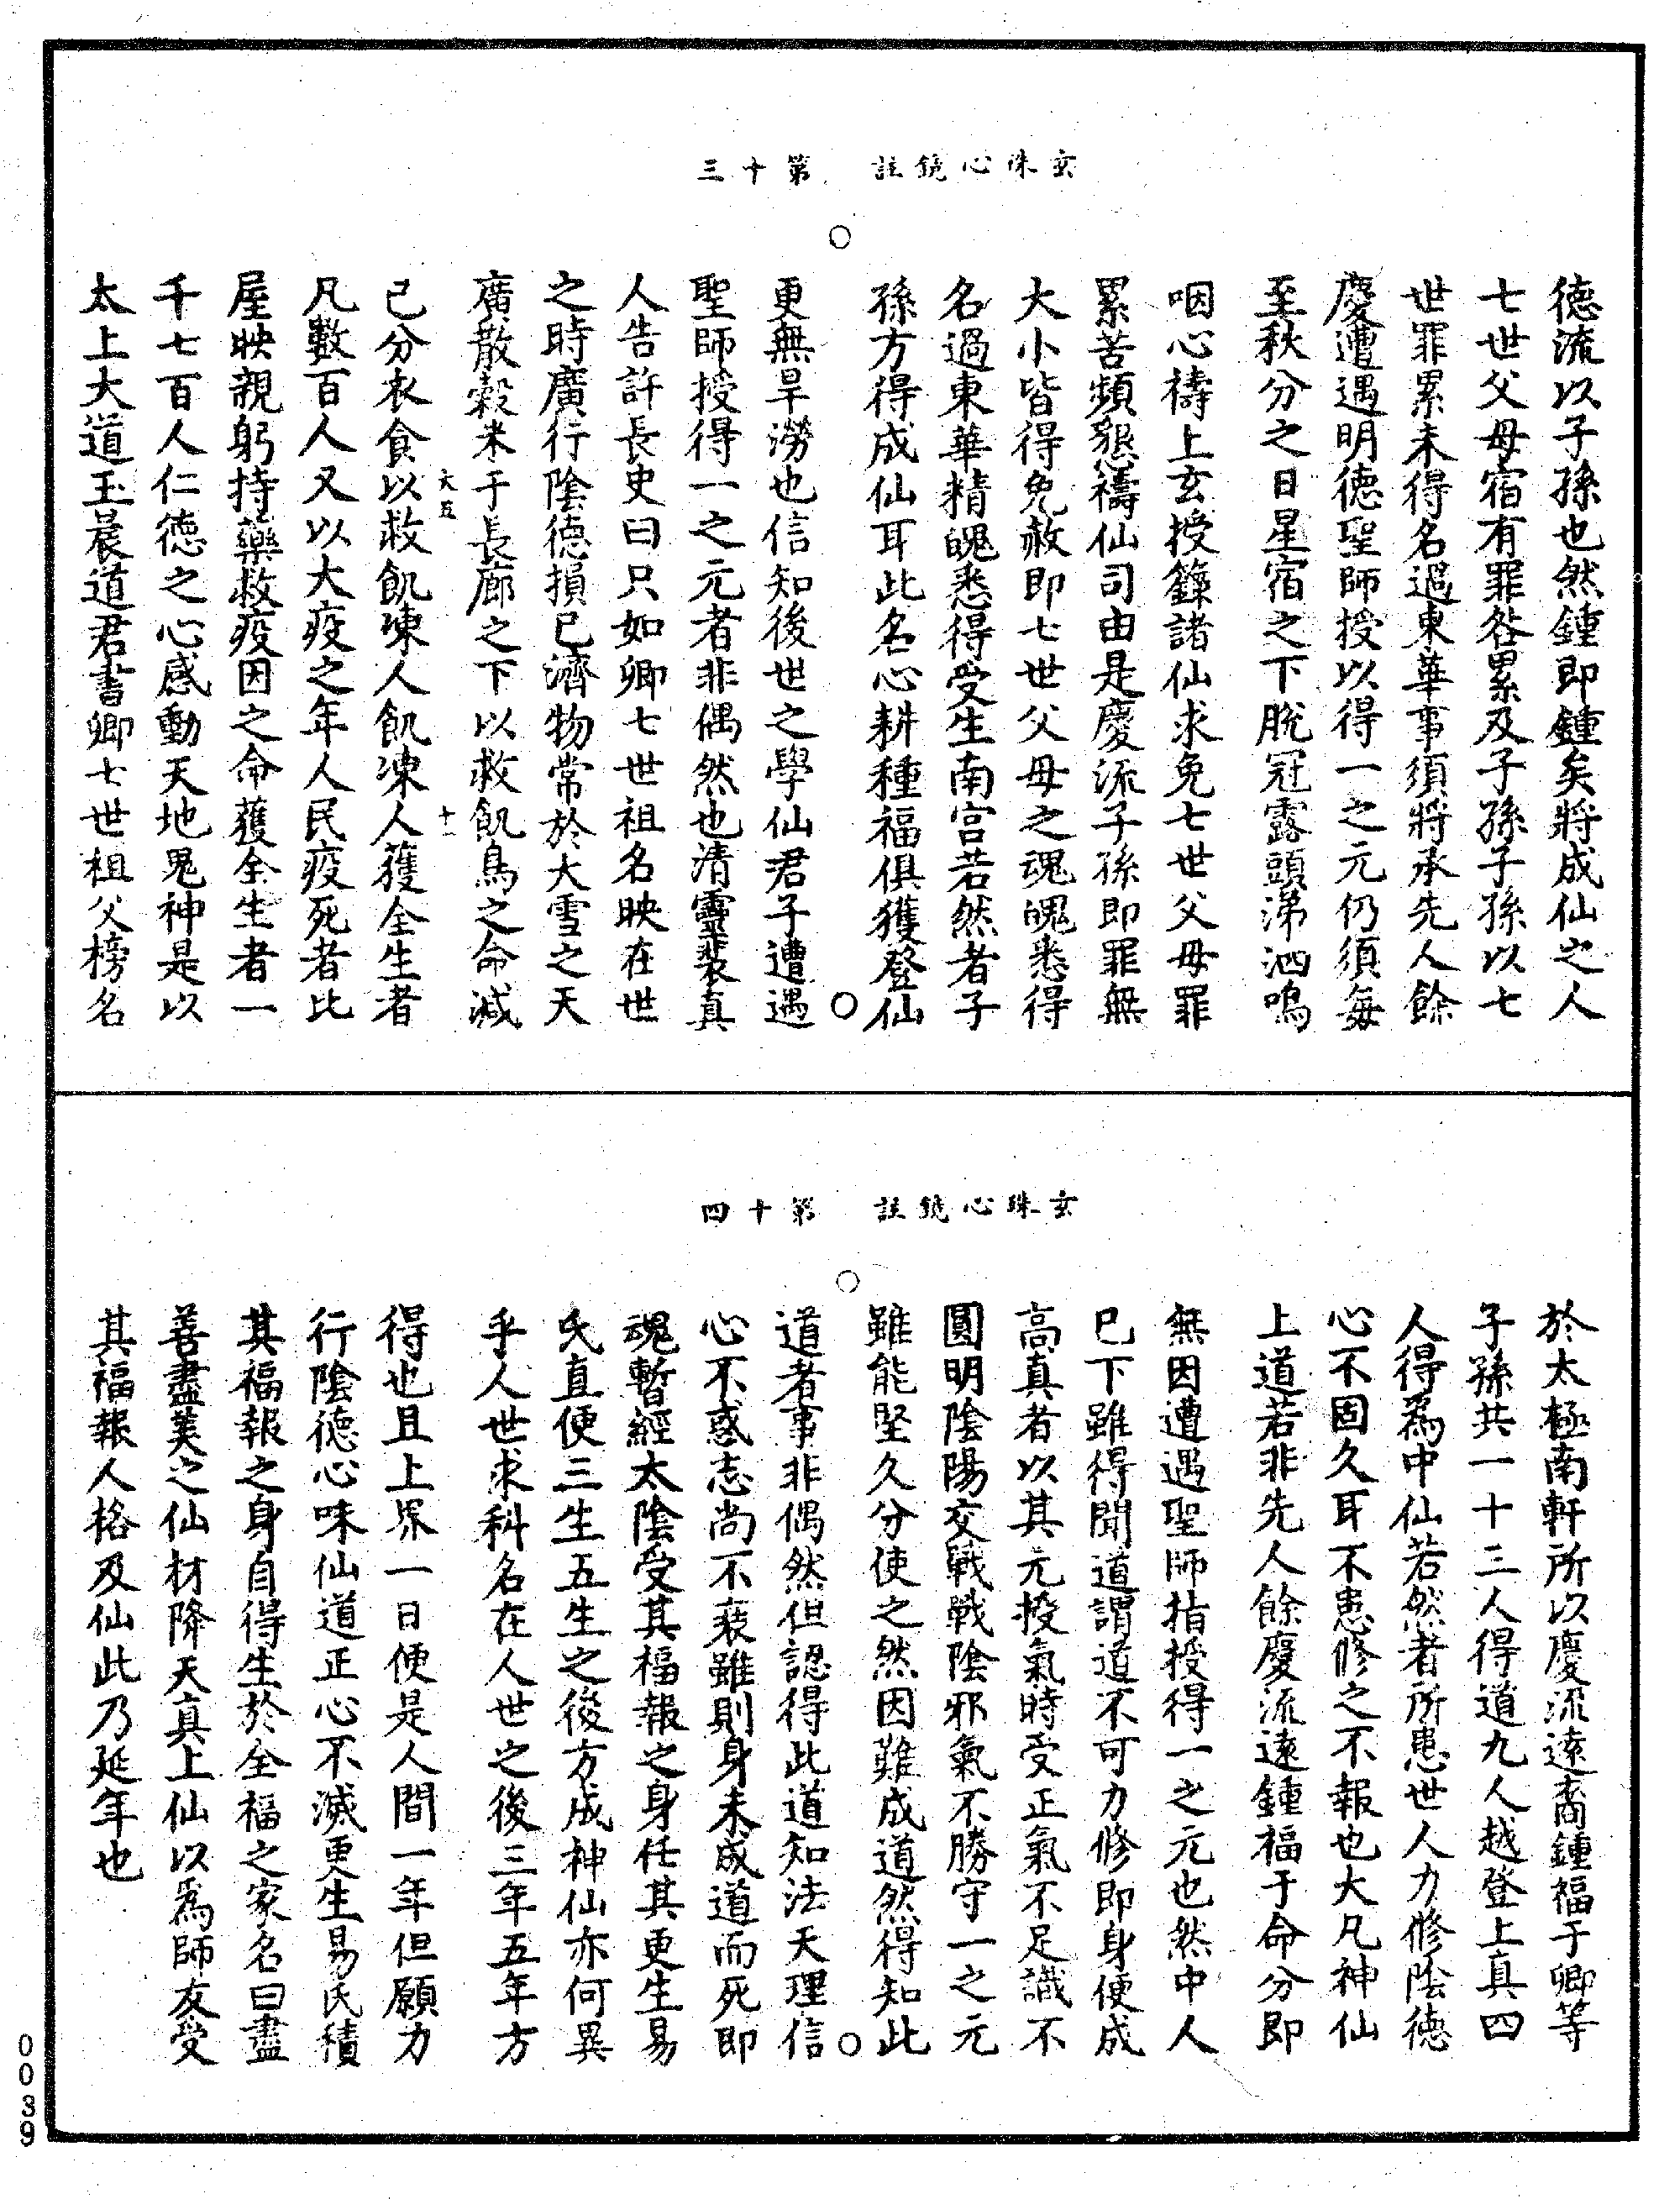 玄珠心鏡註　第十三
德流以子孫也然鍾即鍾矣將成仙之人
七世父母宿有罪咎累及子孫子孫以七
世罪累未得名過東華事須將承先人餘
慶遭遇明德聖師授以得一之元仍須每
至秋分之日星宿之下脫冠露頭涕泗嗚
咽心禱上玄授籙諸仙求免七世父母罪
累苦頻懇禱仙司由是慶流子孫即罪無
大小皆得免赦即七世父母之魂魄悉得
名過東華精魄悉得受生南宮若然者子
孫方得成仙耳此名心耕種福俱獲登仙
更無旱澇也信知後世之學仙君子遭遇
聖師授得一之元者非偶然也清靈裴真
人告許長史曰只如卿七世祖名映在世
之時廣行陰德損已濟物常於大雪之天
廣散穀米于長廊之下以救飢鳥之命減
已分衣食以救飢凍人飢凍人獲全生者
凡數百人又以大疫之年人民疫死者比
屋映親躬持藥救疫因之命獲全生者一
千七百人仁德之心感動天地鬼神是以
太上大道玉晨道君書卿七世祖父榜名
大五
十一
玄珠心鏡註　第十四
於太極南軒所以慶流遠裔鍾福于卿等
子孫共一十三人得道九人越登上真四
人得為中仙若然者所患世人力修陰德
心不固久耳不患修之不報也大凡神仙
上道若非先人餘慶流遠鍾福于命分即
無因遭遇聖師指授得一之元也然中人
已下雖得聞道謂道不可力修即身便成
高真者以其元授氣時受正氣不足識不
圓明陰陽交戰戰陰邪氣不勝守一之元
雖能堅久分使之然因難成道然得知此
道者事非偶然但認得此道知法天理信
心不惑志尚不衰雖則身未成道而死即
魂暫經太陰受其福報之身任其更生易
氏直便三生五生之後方成神仙亦何異
乎人世求科名在人世之後三年五年方
得也且上界一日便是人間一年但願力
行陰德心味仙道正心不滅更生易氏積
其福報之身自得生於全福之家名曰盡
善盡美之仙材降天真上仙以為師友受
其福報人格及仙此乃延年也
0039